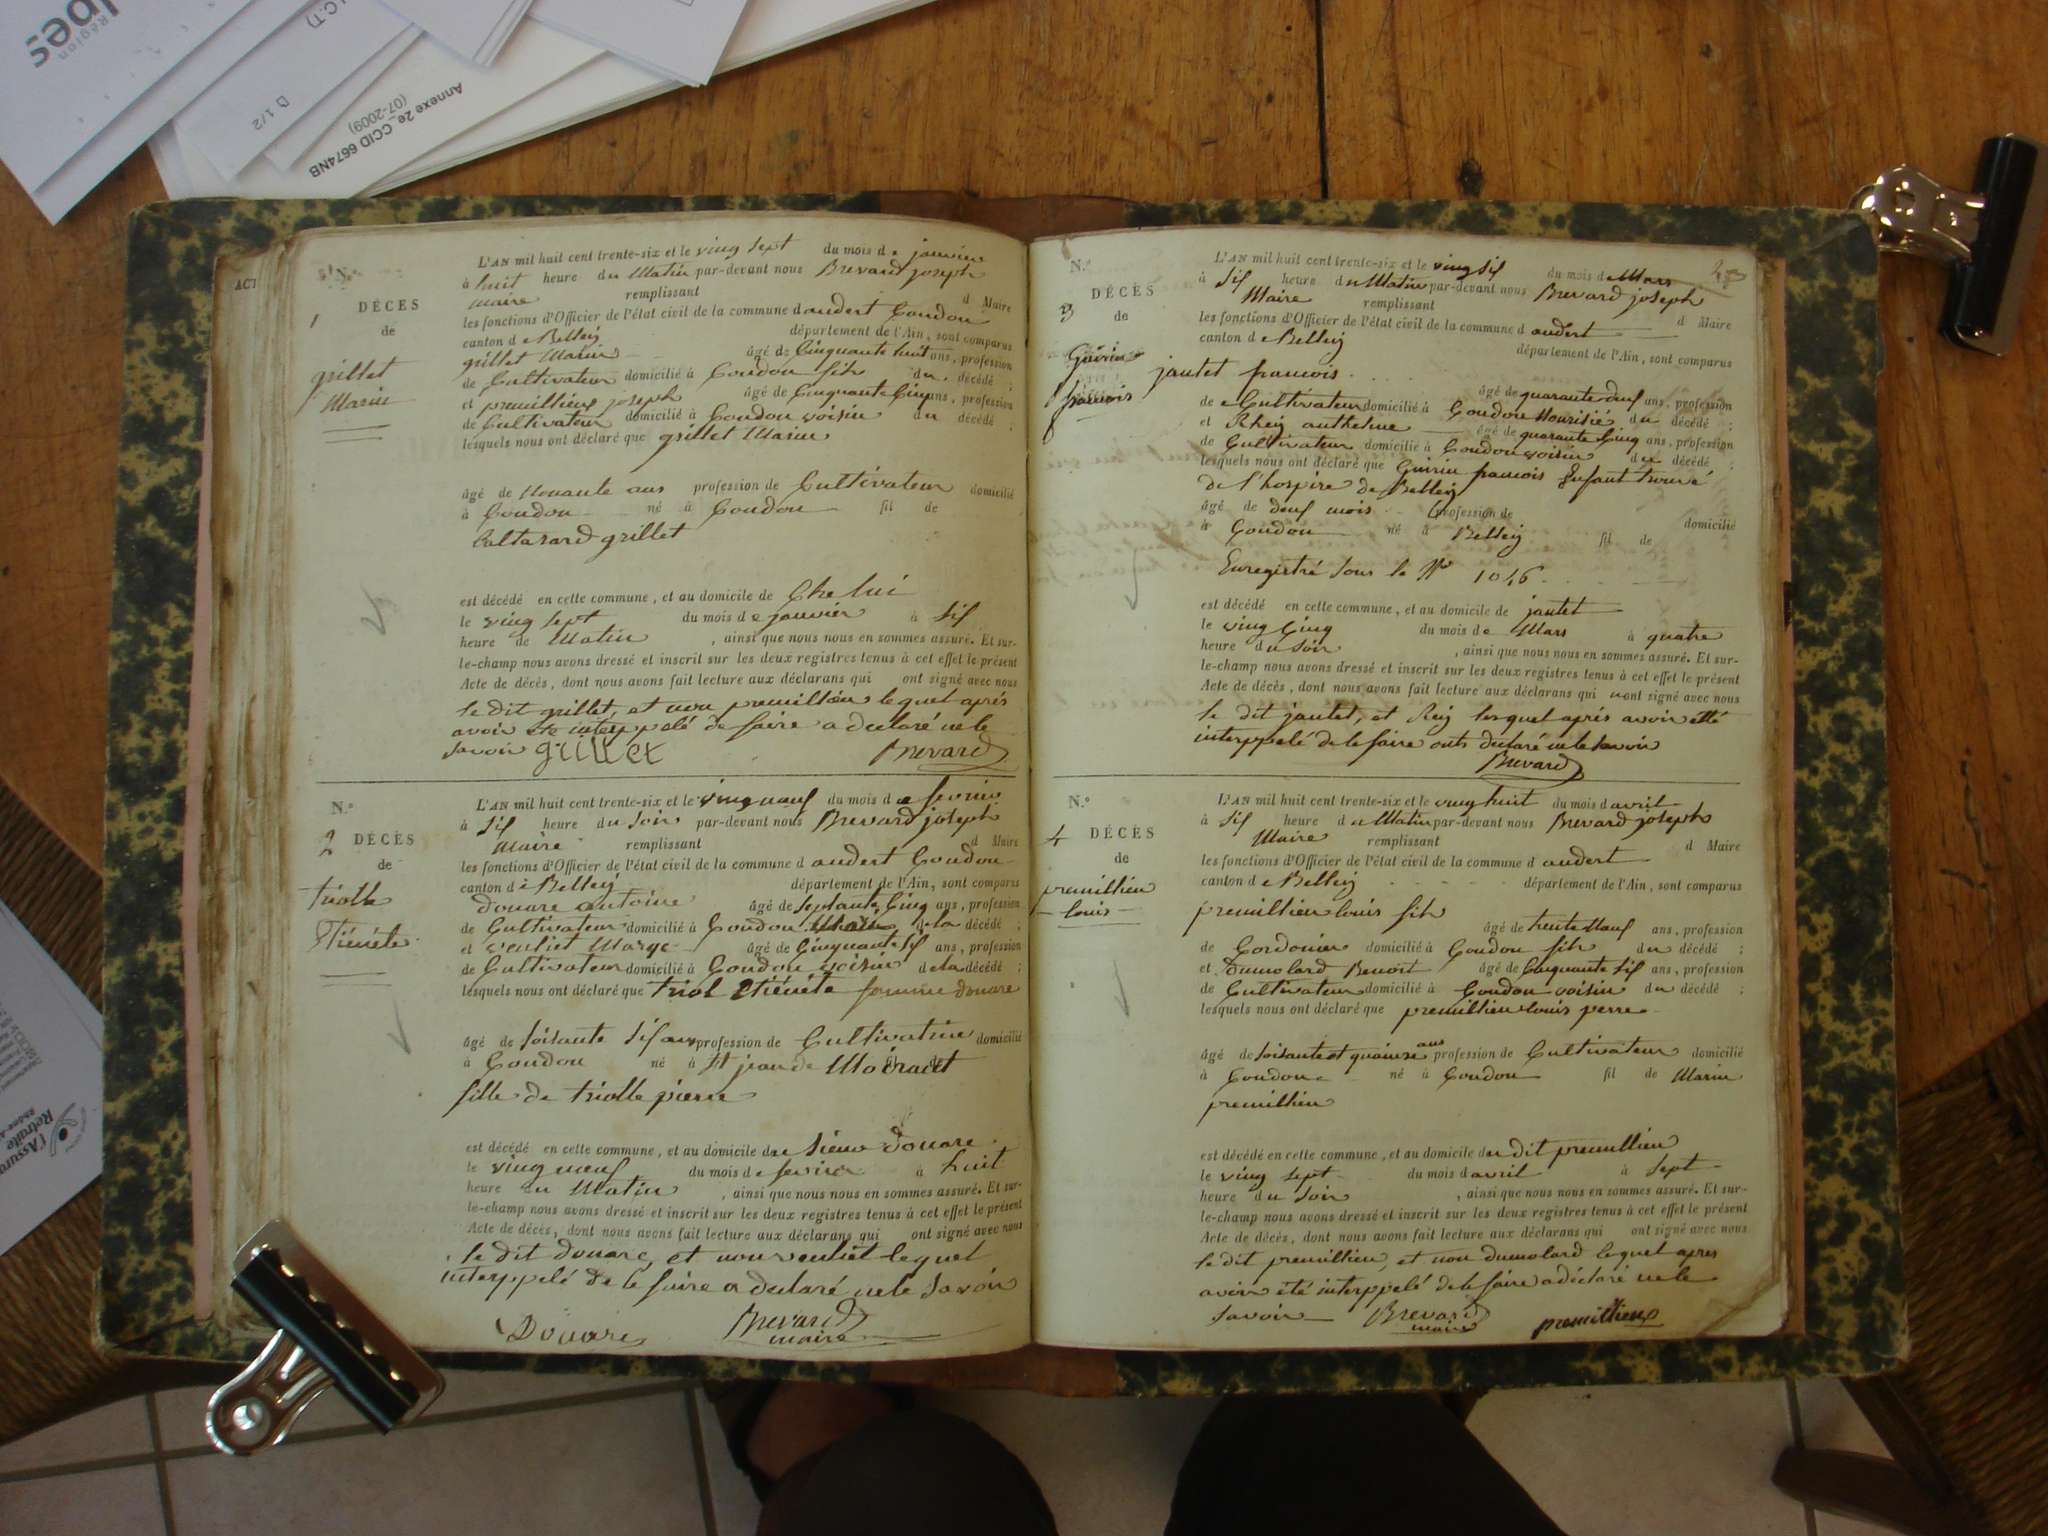 Région
lpes
I.C.T)
D 1/2
Annexe 2e_CCID 6674NB
(07-2009)
ACT
N.°
DÉCES
1
de
grillet
Marin
L'AN mil huit cent trente-six et le ving sept du mois de janvier
à huit heure du Matin par-devant nous Brevard joseph
maire remplissant d Maire
les fonctions d'Officier de l'état civil de la commune d andert Condon
canton de Belley département de l'Ain, sont comparus
grillet Marin âgé de Cinquante huit ans, profession
de Cultivateur domicilié à Condon fils du décédé ;
et premillieux joseph âgé de Cinquante Cinq ans, profession
de Cultivateur domicilié à Condon voisin du décédé ;
lesquels nous ont déclaré que grillet Marin
âgé de Nonante ans profession de Cultivateur domicilié
à Condon né à Condon fil de
baltazard grillet
est décédé en cette commune, et au domicile de Che lui
le ving sept du mois de janvier à sif
heure de Matin , ainsi que nous nous en sommes assuré. Et sur-
le-champ nous avons dressé et inscrit sur les deux registres tenus à cet effet le présent
Acte de décès, dont nous avons fait lecture aux déclarans qui ont signé avec nous
le dit grillet, et non premillieu lequel aprés
avoir ete interppelé de faire a declaré ne le
savoir grillet Brevard
N.°
2 DÉCÈS
de
triolle
Etienete
L'AN mil huit cent trente-six et le ving neuf du mois de fevrier
à sif heure du soir par-devant nous Brevard joseph
Maire remplissant d Maire
les fonctions d'Officier de l'état civil de la commune d andert Condon
canton de Belley département de l'Ain, sont comparus
douare antoine âgé de septante Cinq ans, profession
de Cultivateur domicilié à Condon de la décédé ;
et âgé de Cinquante sif ans, profession
de Cultivateur domicilié à Condon voisin de la décédé ;
lesquels nous ont déclaré que triol Etienete femme douare
âgé de soisante sif ans profession de Cultivatrice domicilié
à Condon né à St jean de
fille de triolle pierre
est décédé en cette commune, et au domicile du sieur douare
le ving neuf du mois de fevrier à huit
heure du Matin , ainsi que nous nous en sommes assuré. Et sur-
le-champ nous avons dressé et inscrit sur les deux registres tenus à cet effet le présent
Acte de décès, dont nous avons fait lecture aux déclarans qui ont signé avec nous
le dit douare, et non lequel
interppelé de le faire a declaré ne le savoir
Douare Brevard
maire
N.°
DÉCÈS
3 de
Guirin
francois
L'AN mil huit cent trente-six et le ving sif du mois de Mars
à sif heure du Matin par-devant nous Brevard joseph
Maire remplissant d Maire
les fonctions d'Officier de l'état civil de la commune d andert
canton de Belley département de l'Ain, sont comparus
jantet francois
âgé de quarante deuf ans, profession
de Cultivateur domicilié à Condon du décédé ;
et Rhey anthelme âgé de quarante Cinq ans, profession
de Cultivateur domicilié à Condon voisin du décédé ;
lesquels nous ont déclaré que Guirin francois Enfant trouvé
de l'hospice de Belley
âgé de deuf mois profession de domicilié
à Condon né à Belley fil de
Enregistré sous le N°
est décédé en cette commune, et au domicile de jantet
le ving Cinq du mois de Mars à quatre
heure du soir , ainsi que nous nous en sommes assuré. Et sur-
le-champ nous avons dressé et inscrit sur les deux registres tenus à cet effet le présent
Acte de décès, dont nous avons fait lecture aux déclarans qui nont signé avec nous
le dit jantet, et Reij lesquel aprés avoir etté
interppelé de le faire onts declaré ne le savoir
Brevard
N.°
4 DÉCÈS
de
premillieu
louis
L'AN mil huit cent trente-six et le ving huit du mois d avril
à sif heure du Matin par-devant nous Brevard joseph
Maire remplissant d Maire
les fonctions d'Officier de l'état civil de la commune d andert
canton de Belley département de l'Ain, sont comparus
premillieu louis fils
âgé de trente Nauf ans, profession
de Cordonier domicilié à Condon fils du décédé ;
et Dumolard Benoit âgé de Cinquante sif ans, profession
de Cultivateur domicilié à Condon voisin du décédé ;
lesquels nous ont déclaré que premillieu louis perre
âgé de soisante et quainze ans profession de Cultivateur domicilié
à Condon né à Condon fil de Marin
premillieu
est décédé en cette commune, et au domicile du dit premillieu
le ving sept du mois d avril à sept
heure du soir , ainsi que nous nous en sommes assuré. Et sur-
le-champ nous avons dressé et inscrit sur les deux registres tenus à cet effet le présent
Acte de décès, dont nous avons fait lecture aux déclarans qui ont signé avec nous
le dit premillieu, et non dumolard lequel apres
avoir été interppelé de le faire a déclaré ne le
savoir Brevard premillieux
maire
l'Assura
Retraite
Rhône-A